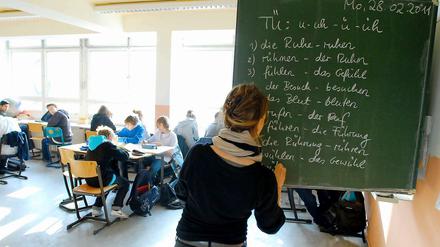 Mo, 28.02.2011
TÜ: u-uh-ü-üh
1) die Ruhe - ruhen
2) rühmen - der Ruhm
3) fühlen - das Gefühl
der Besuch - besuchen
das Blut - bluten
rufen - der Ruf
führen - die Führung
die Rührung - rühren
wühlen - das Gewühl